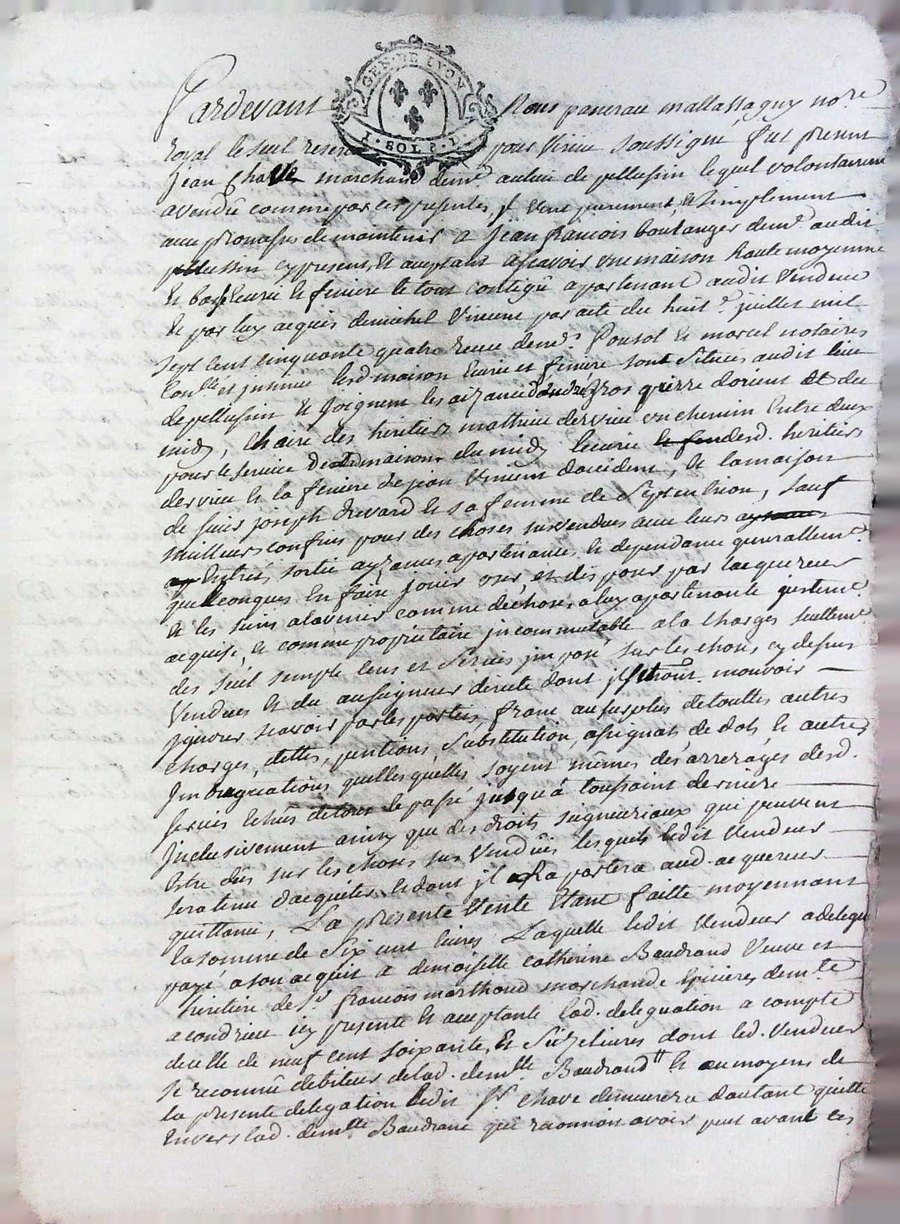 GEN. DE LYON
1. SOL 2. S.
Pardevant Nous mallassaguy no.re
royal le seul reservé pour Virieu soussigné fut present
Jean Chave marchand dem.t au lieu de pellussin lequel volontairem
a vendu comme par ces presentes, il vend purement, & simplement
avec promesses de maintenir a Jean francois boulanger dem.t audit
pellussin cy present, & acceptant ascavoir une maison haute moyenne
& basse ecurie & feniere le tout contigu apartenant audit Vendeur
& par luy acquis de michel Vincent par acte du huit.e juillet mil
sept cent cinquante quatre receu dem.s Ponsol & morel notaires
lesd maison ecurie et feniere sont situés audit lieu
de pellussin & Joignent les aizances d'andré gros pierre dorient et du
midy, chaire des heritiers mathieu dervieu un chemin entre deux
pour le service desd maisons du midy lecurie desd. heritiers
dervieu & la feniere de jean Vincent doccident, & la maison
de feu joseph & sa femme de Septentrion, sauf
meilleurs confins pour des choses susvendues avec leurs
Entrés, sortie ayzances apartenances & dependance generallem.t
quelconques En faire jouir user, et disposer par lacquereur
& les siens alavenir comme de choses a luy apartenante justem.t
acquise, & comme proprietaire jncommutable a la Charges seullem.t
des seul simple cens et servis jmposé sur les choses cy dessus
Vendues & du au seigneur directe dont mouvoir
pour scavoir par les parties, franc au surplus de touttes autres
charges, dettes, pentions substitution, assignats de dots & autres
jmbrigations quelles quelles soyent mêmes des arrerages desd.
servis Echus de tout le passé jusqu'a toussaint derniere
jnclusivement ainsy que des droits seigneuriaux qui peuvent
Estre dûs sur les choses sus Vendûes lesquels ledit Vendeur
sera tenu d'acquiter & dont jl raportera aud. acquereur
quittance, La presente Vente Etant faitte moyennant
la somme de Six cent livres Laquelle ledit Vendeur a delegué
payé a son acquit a demoiselle catherine Baudrand Veuve et
heritiere de s.r francois marthoud marchande Epiciere dem.te
a condrieu icy presente & acceptante lad. delegation a compte
de celle de neuf cent soixante, & Six livres dont led. Vendeur
se reconnu debiteur de lad. dem.lle Baudrand & au moyens de
la presente delegation ledit s.r chave demeurera d'autant quitte
Envers lad. dem.lle Baudrand qui reconnois avoir peut avant ces